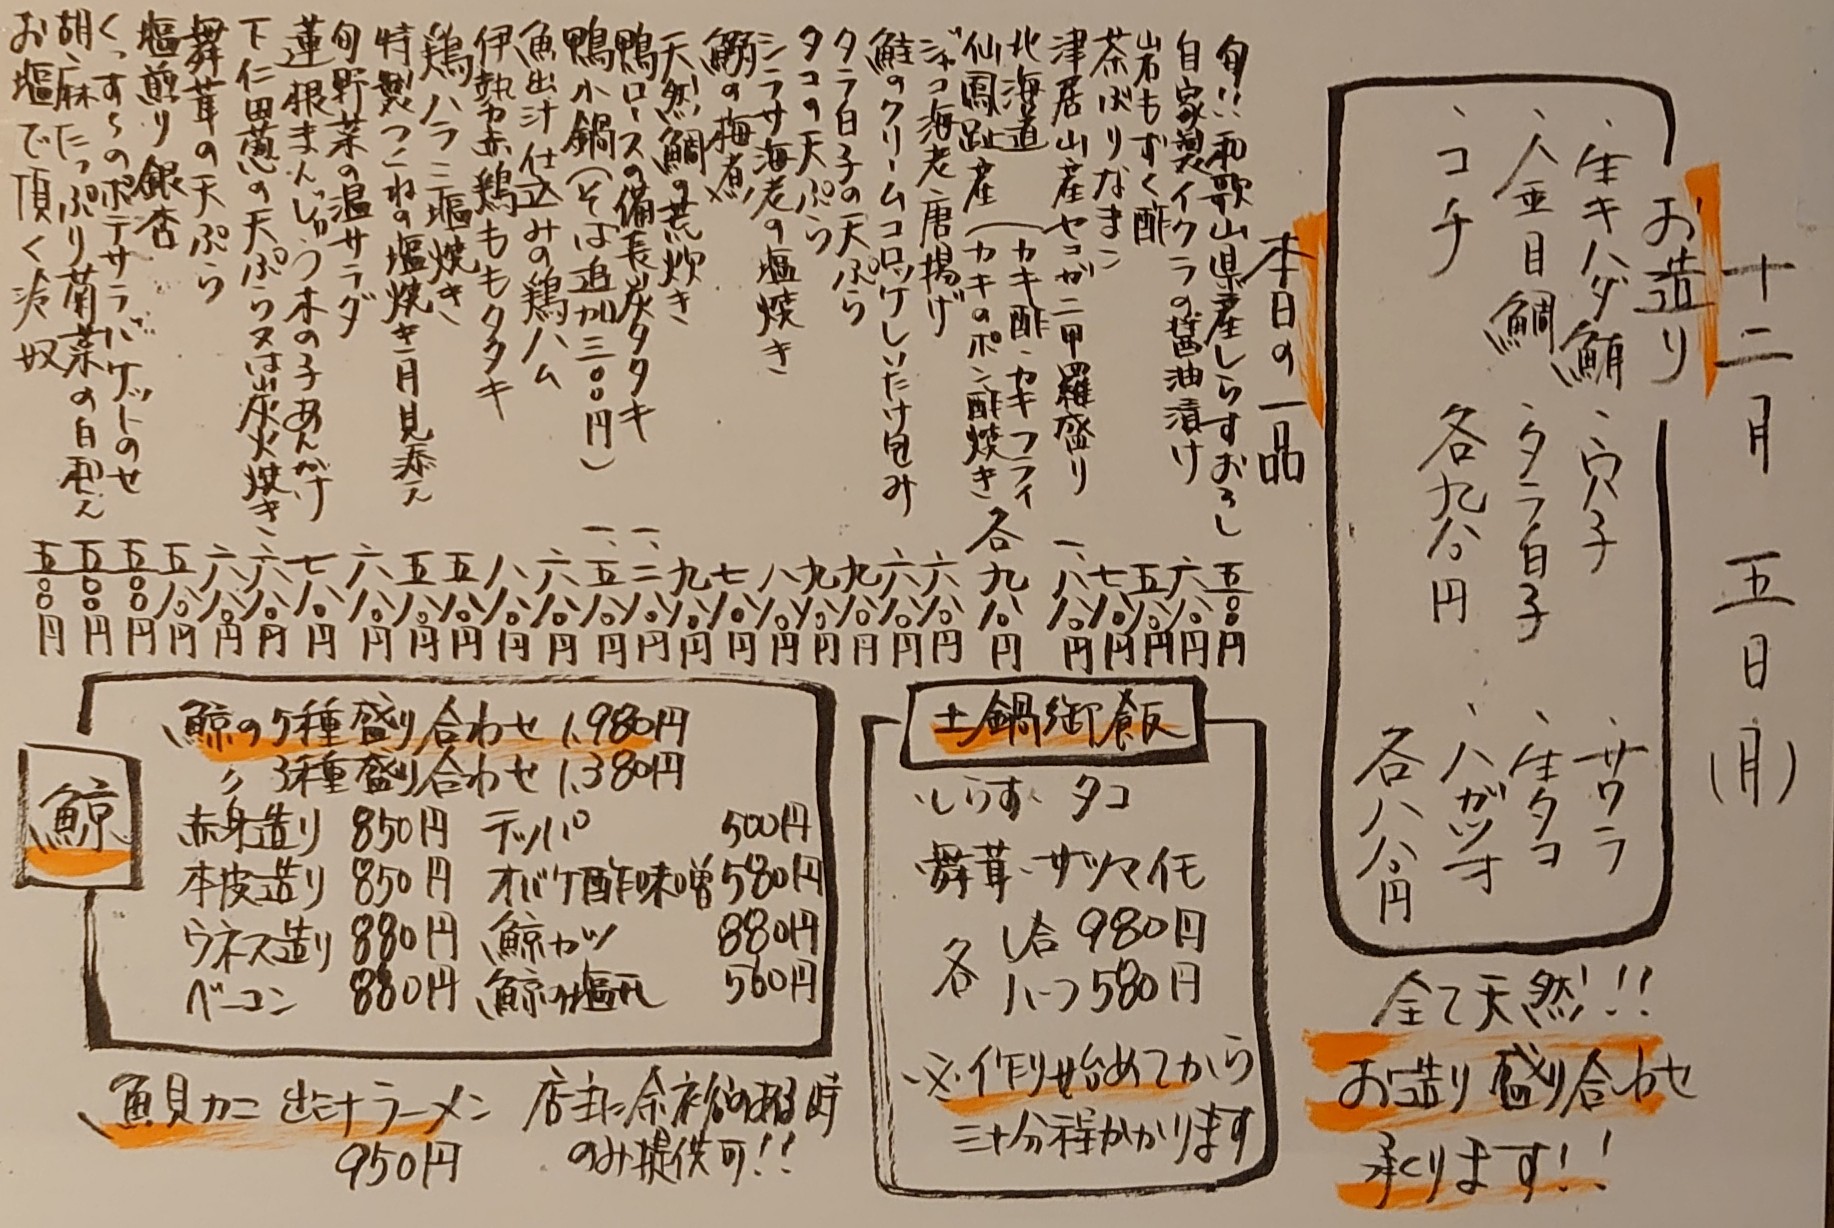 十二月 五日(月)
お造り
、生キハダ鮪 、穴子 、サワラ
、金目鯛 、タラ白子 、生タコ
、コチ 各九八〇円 、ハガツオ
各八八〇円
全て天然!!
お造り盛り合わせ
承ります!!
本日の一品
旬!!和歌山県産しらすおろし 五〇〇円
自家製イクラの醤油漬け 六八〇円
岩もずく酢 五八〇円
茶ぶりなまこ 七八〇円
津居山産セコガニ甲羅盛り 一、八八〇円
北海道 (カキ酢・カキフライ
仙鳳趾産 (カキのポン酢焼き 各九八〇円
ジャコ海老唐揚げ 六八〇円
鮭のクリームコロッケしいたけ包み 六八〇円
タラ白子の天ぷら 九八〇円
タコの天ぷら 九八〇円
シラサ海老の塩焼き 八八〇円
鰯の梅煮 七八〇円
天然鯛の荒炊き 九八〇円
鴨ロースの備長炭タタキ 一、二八〇円
鴨小鍋(そば追加三〇〇円) 一、五八〇円
魚出汁仕込みの鶏ハム 六八〇円
伊勢赤鶏ももタタキ 八八〇円
鶏ハラミ塩焼き 五八〇円
特製つくねの塩焼き 月見添え 五八〇円
旬野菜の温サラダ 六八〇円
蓮根まんじゅう木の子あんかけ 七八〇円
下仁田葱の天ぷら又は炭火焼き 六八〇円
舞茸の天ぷら 六八〇円
塩煎り銀杏 五八〇円
くっすんのポテサラバゲットのせ 五〇〇円
胡麻たっぷり菊菜の白和え 五〇〇円
お塩で頂く冷奴 五〇〇円
土鍋御飯
・しらす・タコ
・舞茸・サツマイモ
各 1合 980円
ハーフ 580円
※作り始めてから
三十分程かかります
鯨
鯨の5種盛り合わせ 1,980円
〃 3種盛り合わせ 1,380円
赤身造り 850円 テッパ 500円
本皮造り 850円 オバケ酢味噌 580円
ウネス造り 880円 鯨カツ 880円
ベーコン 880円 鯨の塩タレ 560円
、魚貝カニ出汁ラーメン 店主に余裕のある時
950円 のみ提供可!!